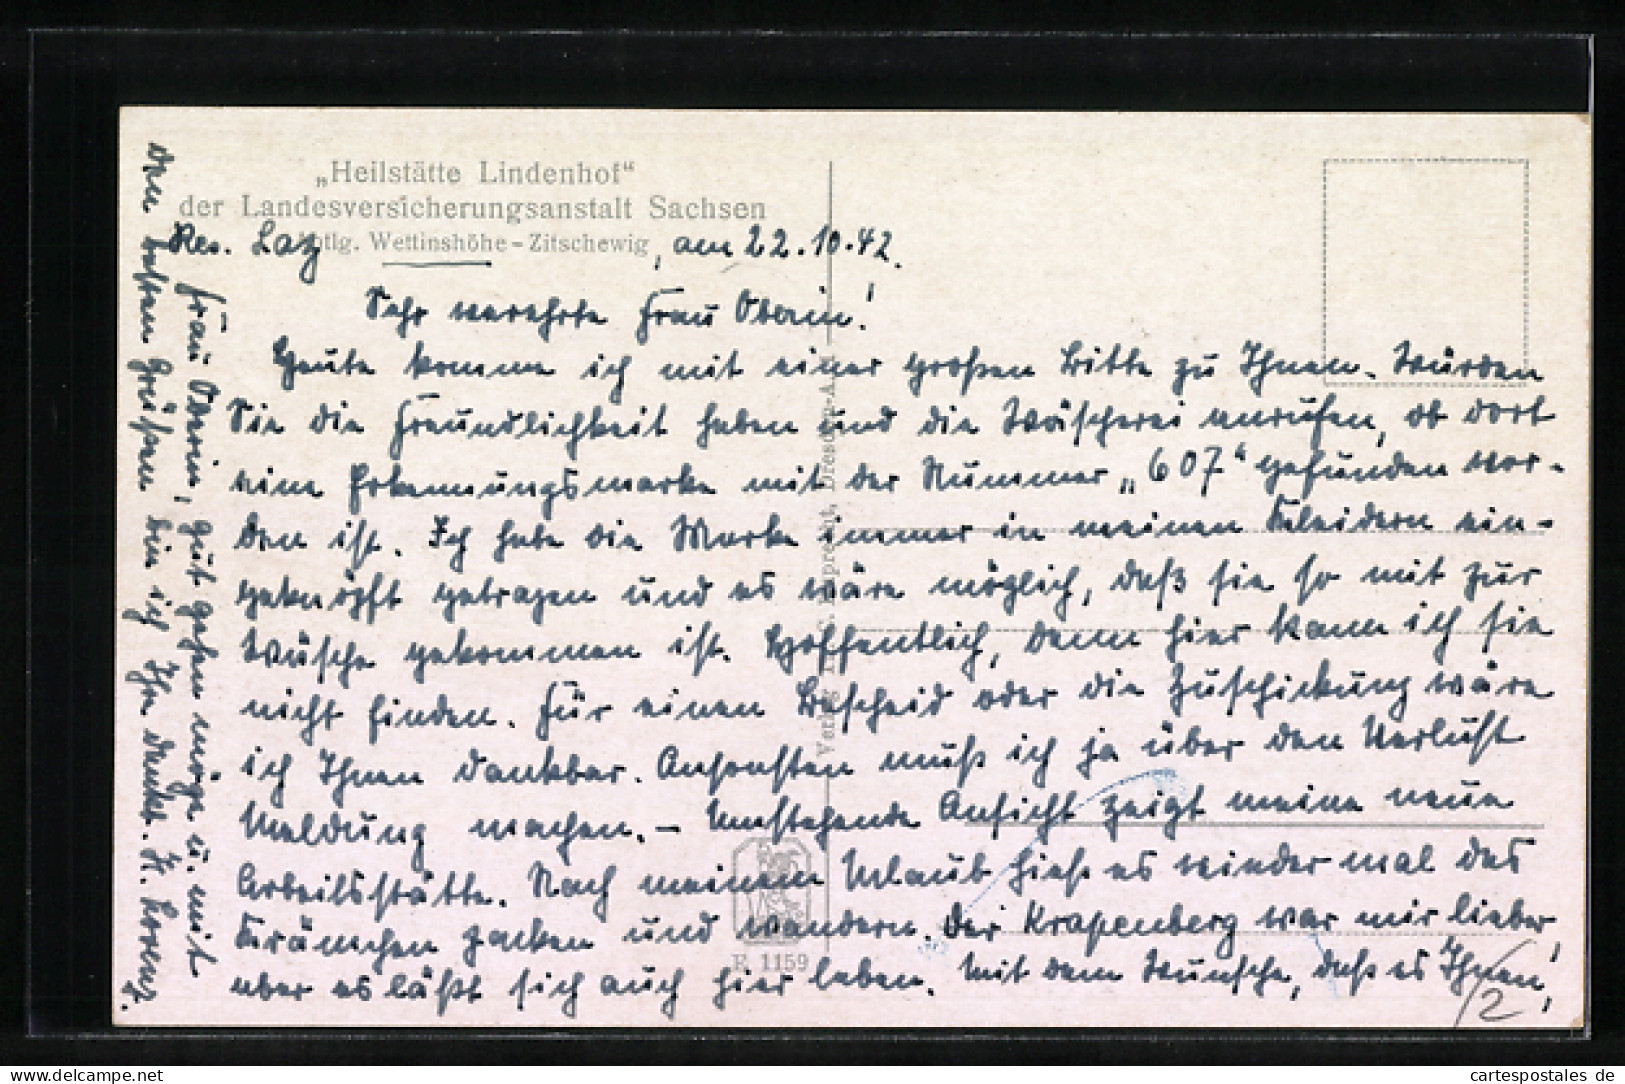 „Heilstätte Lindenhof“
der Landesversicherungsanstalt Sachsen
Res. Laz Abtlg. Wettinshöhe - Zitschewig, am 22.10.42.
Sehr verehrte Frau Oberin!
Heute komme ich mit einer großen Bitte zu Ihnen. Würden
Sie die Freundlichkeit haben und die Wäscherei anrufen, ob dort
eine Erkennungsmarke mit der Nummer „607“ gefunden wor-
den ist. Ich habe die Marke immer in meinen Kleidern ein-
geknöpft getragen und es wäre möglich, daß sie so mit zur
Wäsche gekommen ist. Hoffentlich, denn hier kann ich sie
nicht finden. Für einen Bescheid oder die Zuschickung wäre
ich Ihnen dankbar. Ansonsten muß ich ja über den Verlust
Meldung machen. – Umstehende Ansicht zeigt meine neue
Arbeitsstätte. Nach meinem Urlaub hieß es wieder mal das
Ränzchen packen und wandern. Der Krapenberg war mir lieber,
aber es läßt sich auch hier leben. Mit dem Wunsche, daß es Ihnen,
Frau Oberin, gut gehen möge u. mit
den besten Grüßen bin ich Ihr dankb. H. Lorenz.
Verlag Dresden-A.
F. 1159
2
cartespostales de